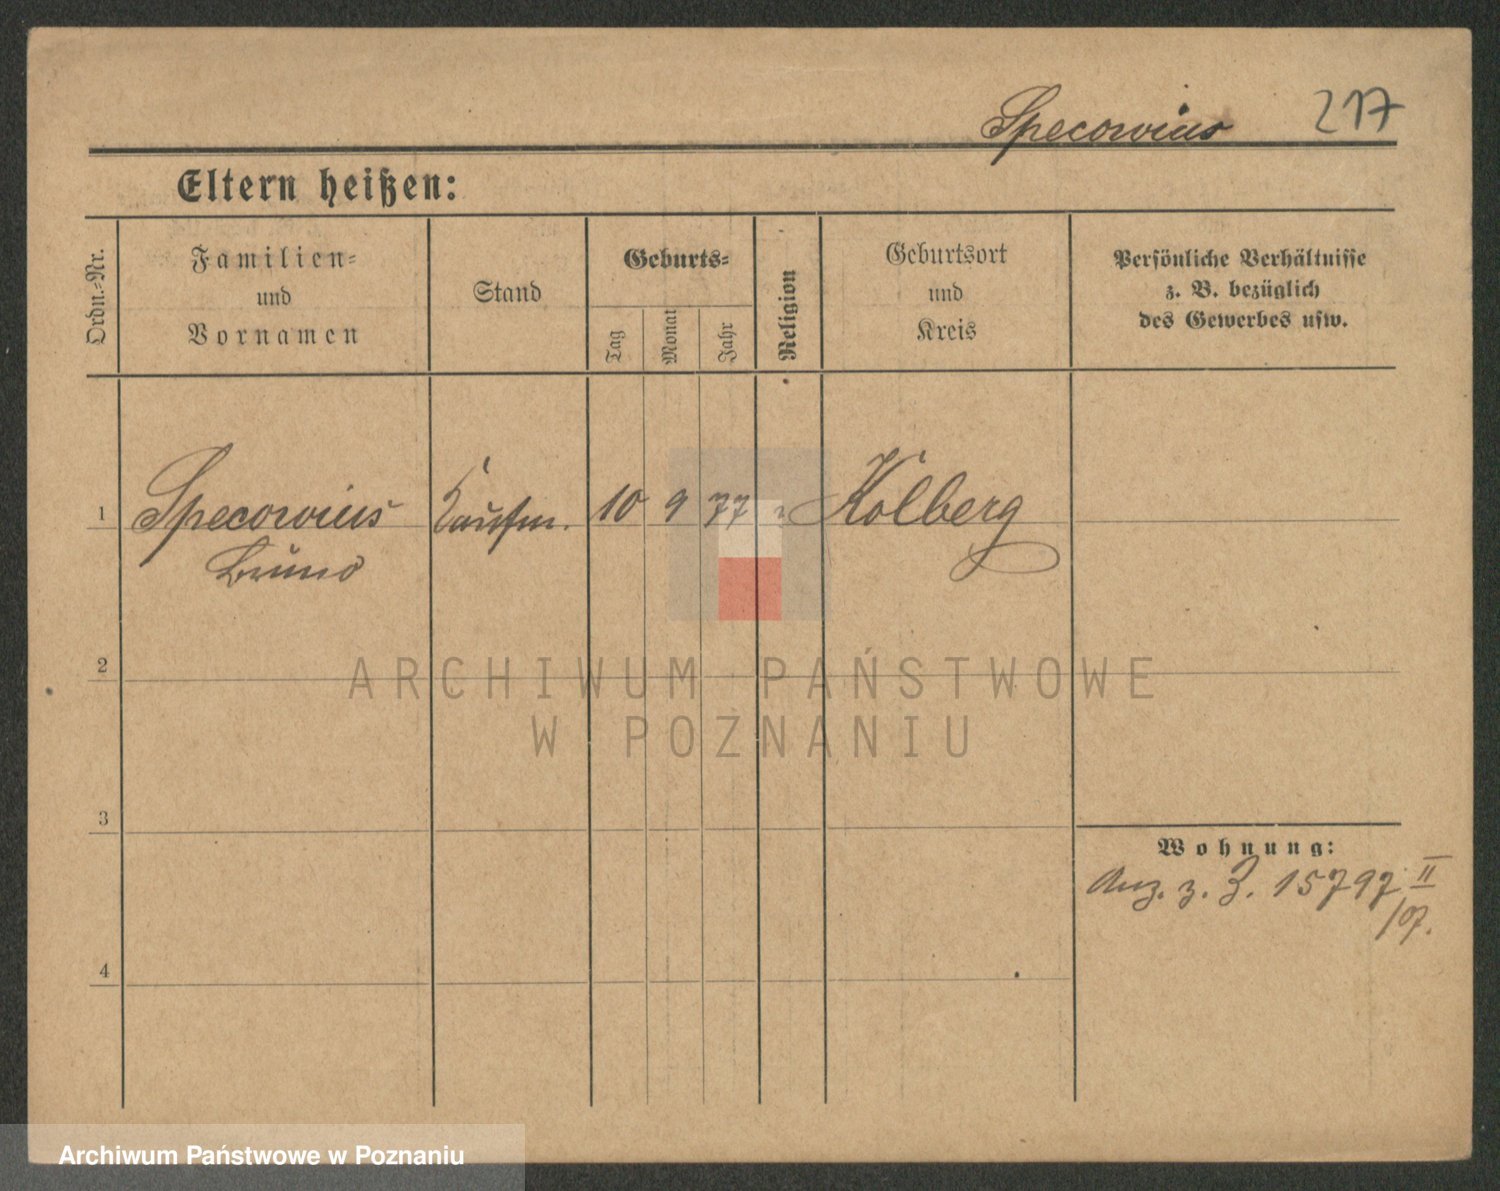 Specowius 217
Eltern heißen:
Ordn.-Nr.
Familien-
und
Vornamen
Stand
Geburts-
Tag
Monat
Jahr
Religion
Geburtsort
und
Kreis
Persönliche Verhältnisse
z. B. bezüglich
des Gewerbes usw.
1 Specowius Kaufm. 10 9 77 Kolberg
Bruno
2
ARCHIWUM PAŃSTWOWE
W POZNANIU
3
Wohnung:
Anz. z. Z. 15797 II
/07.
4
Archiwum Państwowe w Poznaniu